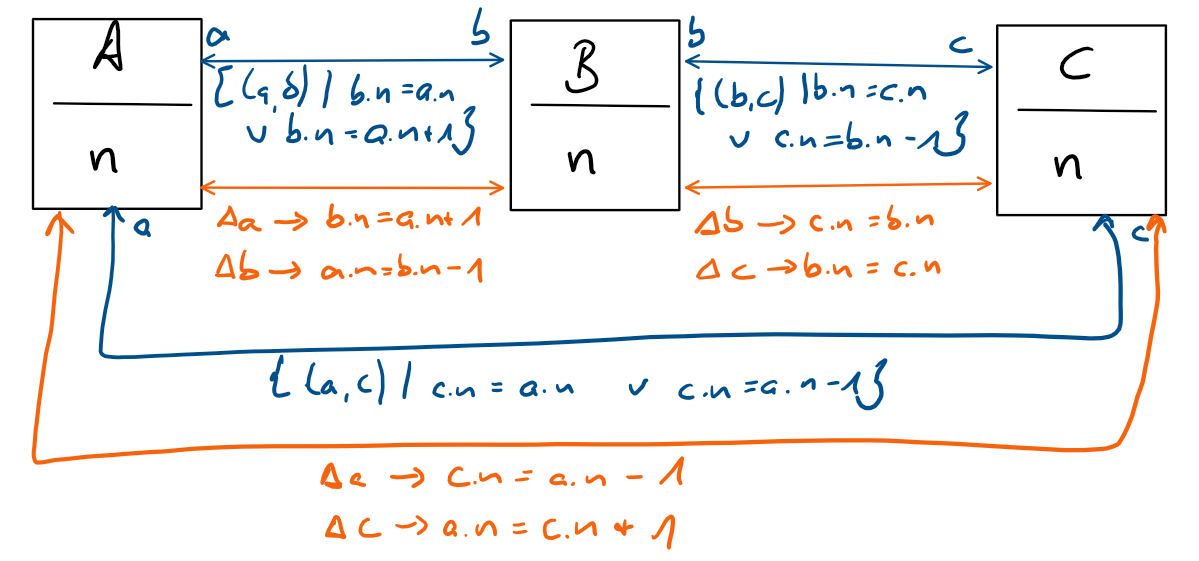 A
n
a
b
{(a,b) | b.n=a.n
∨ b.n=a.n+1}
Δa → b.n=a.n+1
Δb → a.n=b.n-1
B
n
b
c
{(b,c) | b.n=c.n
∨ c.n=b.n-1}
Δb → c.n=b.n
Δc → b.n=c.n
C
n
a
c
{(a,c) | c.n=a.n ∨ c.n=a.n-1}
Δa → c.n=a.n-1
Δc → a.n=c.n+1